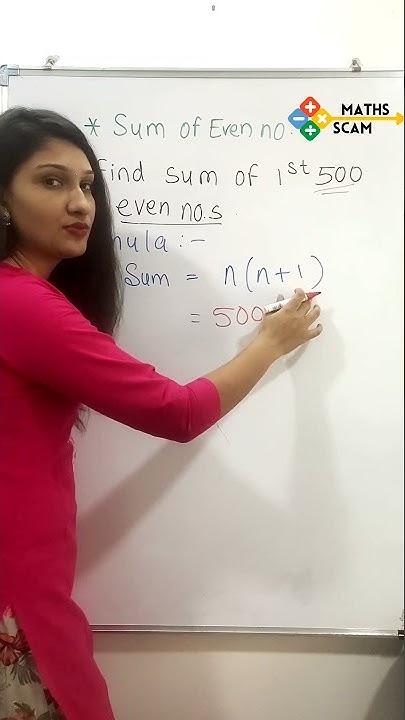 * Sum of Even no.
MATHS
SCAM
find sum of 1st 500
even no.s
mula :-
Sum = n(n+1)
= 500